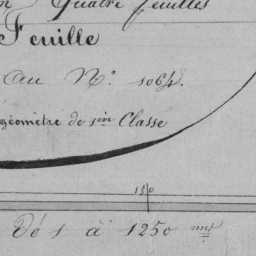 en Quatre feuilles
Feuille
au N.° 1064.
géomètre de 1ère Classe
150
Dé 1 à 1250 ms